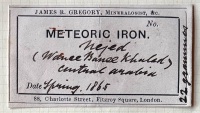 JAMES R. GREGORY, MINERALOGIST, &c.
No.
METEORIC IRON.
Nejed
(Wanee Banee Khaled)
Central Arabia
Date Spring, 1865
88, Charlotte Street, Fitzroy Square, London.
22 grammes